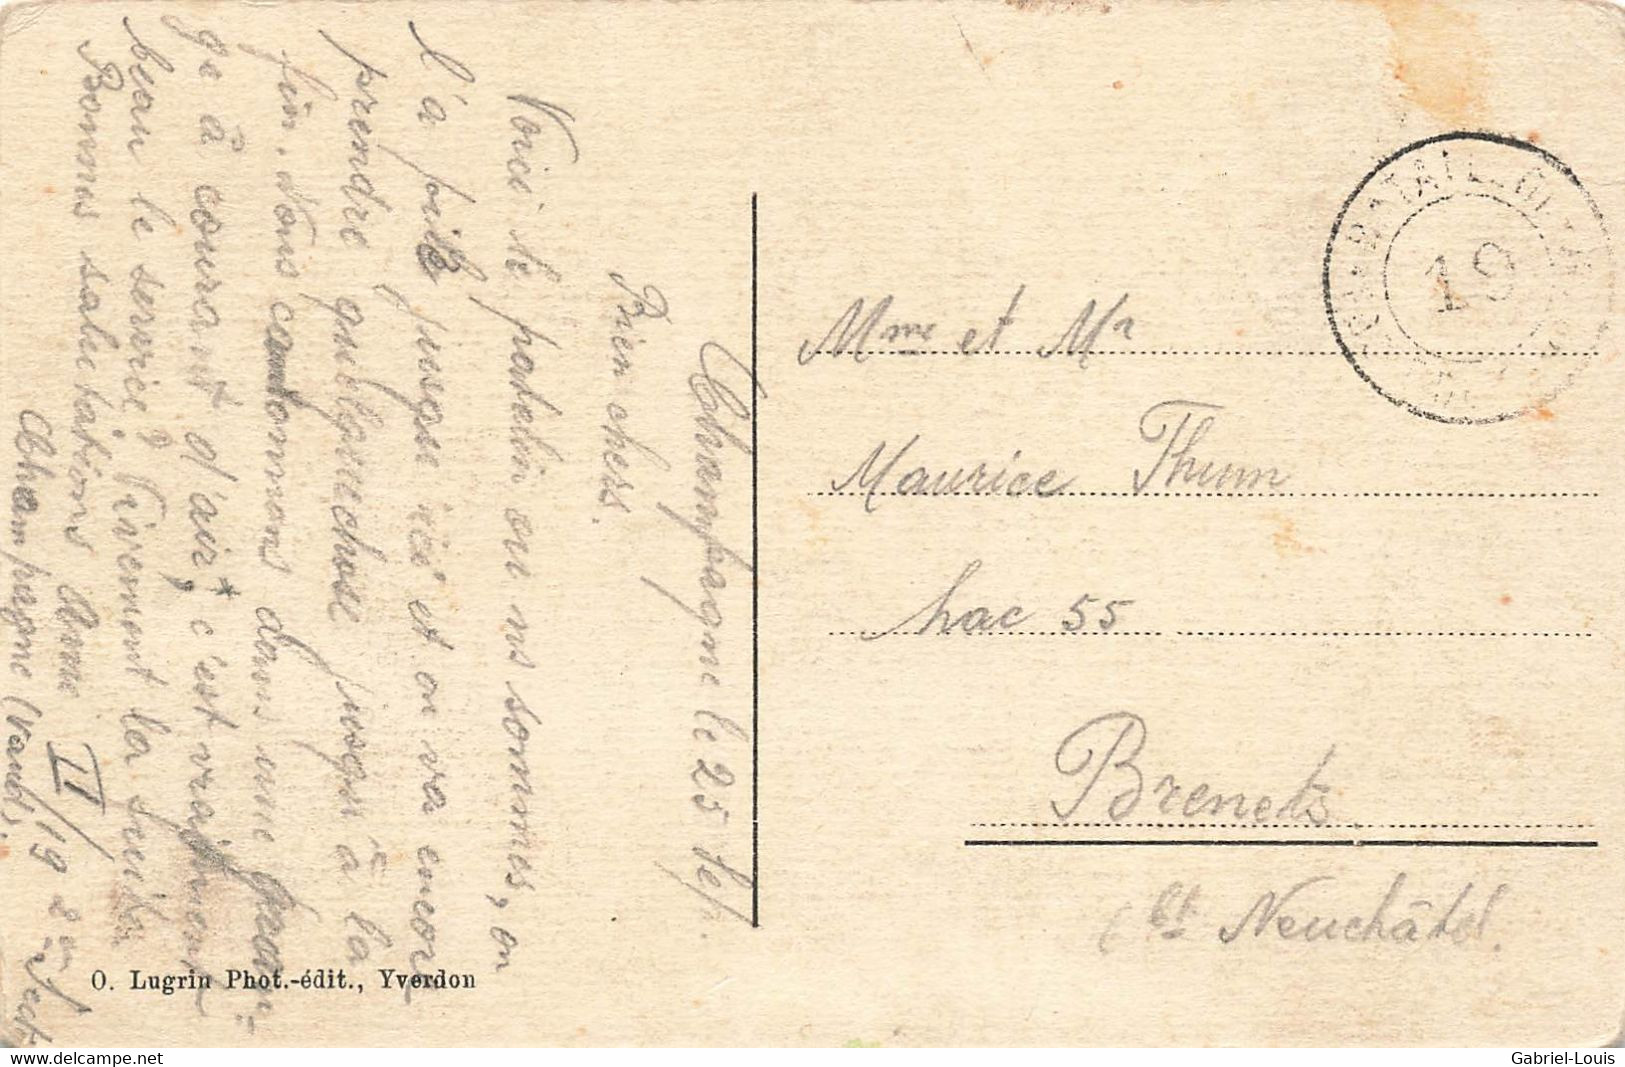 Champagne le 25 Sep.
Bien chers.
Voici le patelin ou ns sommes, on
l'a fuit jusque ici et on va encore
prendre quelquechose jusqu'à la
fin. Nous cantonnons dans une
ge à courant d'air, c'est vraiment
beau le service! Vivement la suite
Bonnes salutations
II/19 2e Sect.
Champagne (Vaud).
O. Lugrin Phot.-édit., Yverdon
19
Mme et Mr
Maurice Thum
Lac 55
Brenets
Ct Neuchâtel.
delcampe.net
Gabriel-Louis